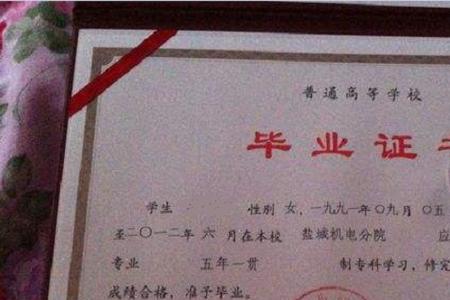 普通高等学校
毕业证
学生 性别 女，一九九一年〇九月〇五
至二〇一二年 六 月在本校 盐城机电分院 应
专业 五年一贯 制专科学习，修完
成绩合格，准予毕业。